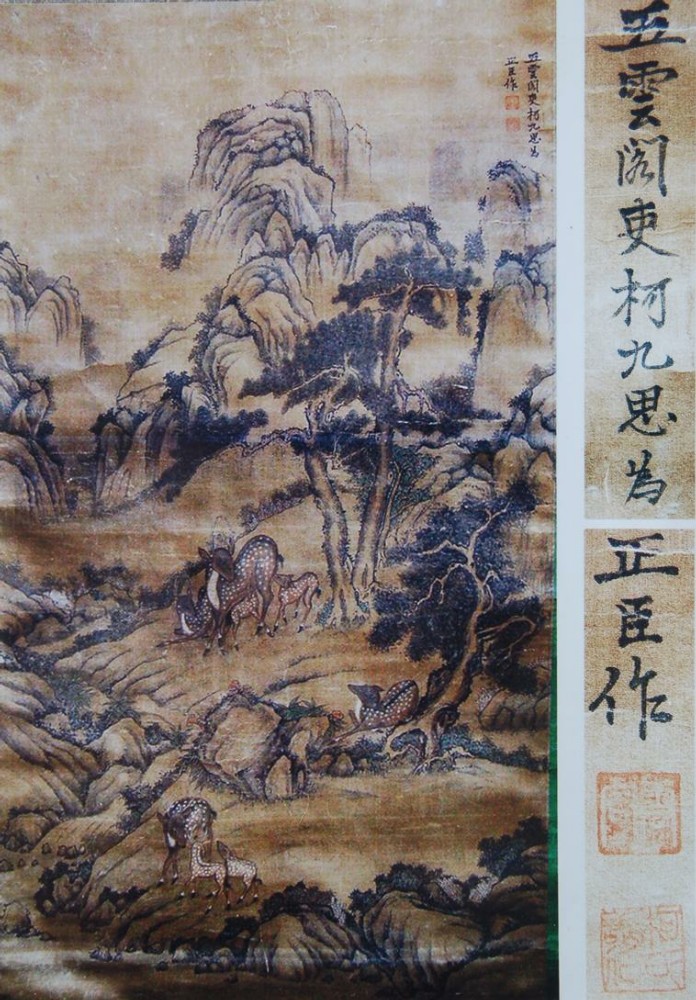 五雲閣吏柯九思為
正臣作
五雲閣吏柯九思為
正臣作